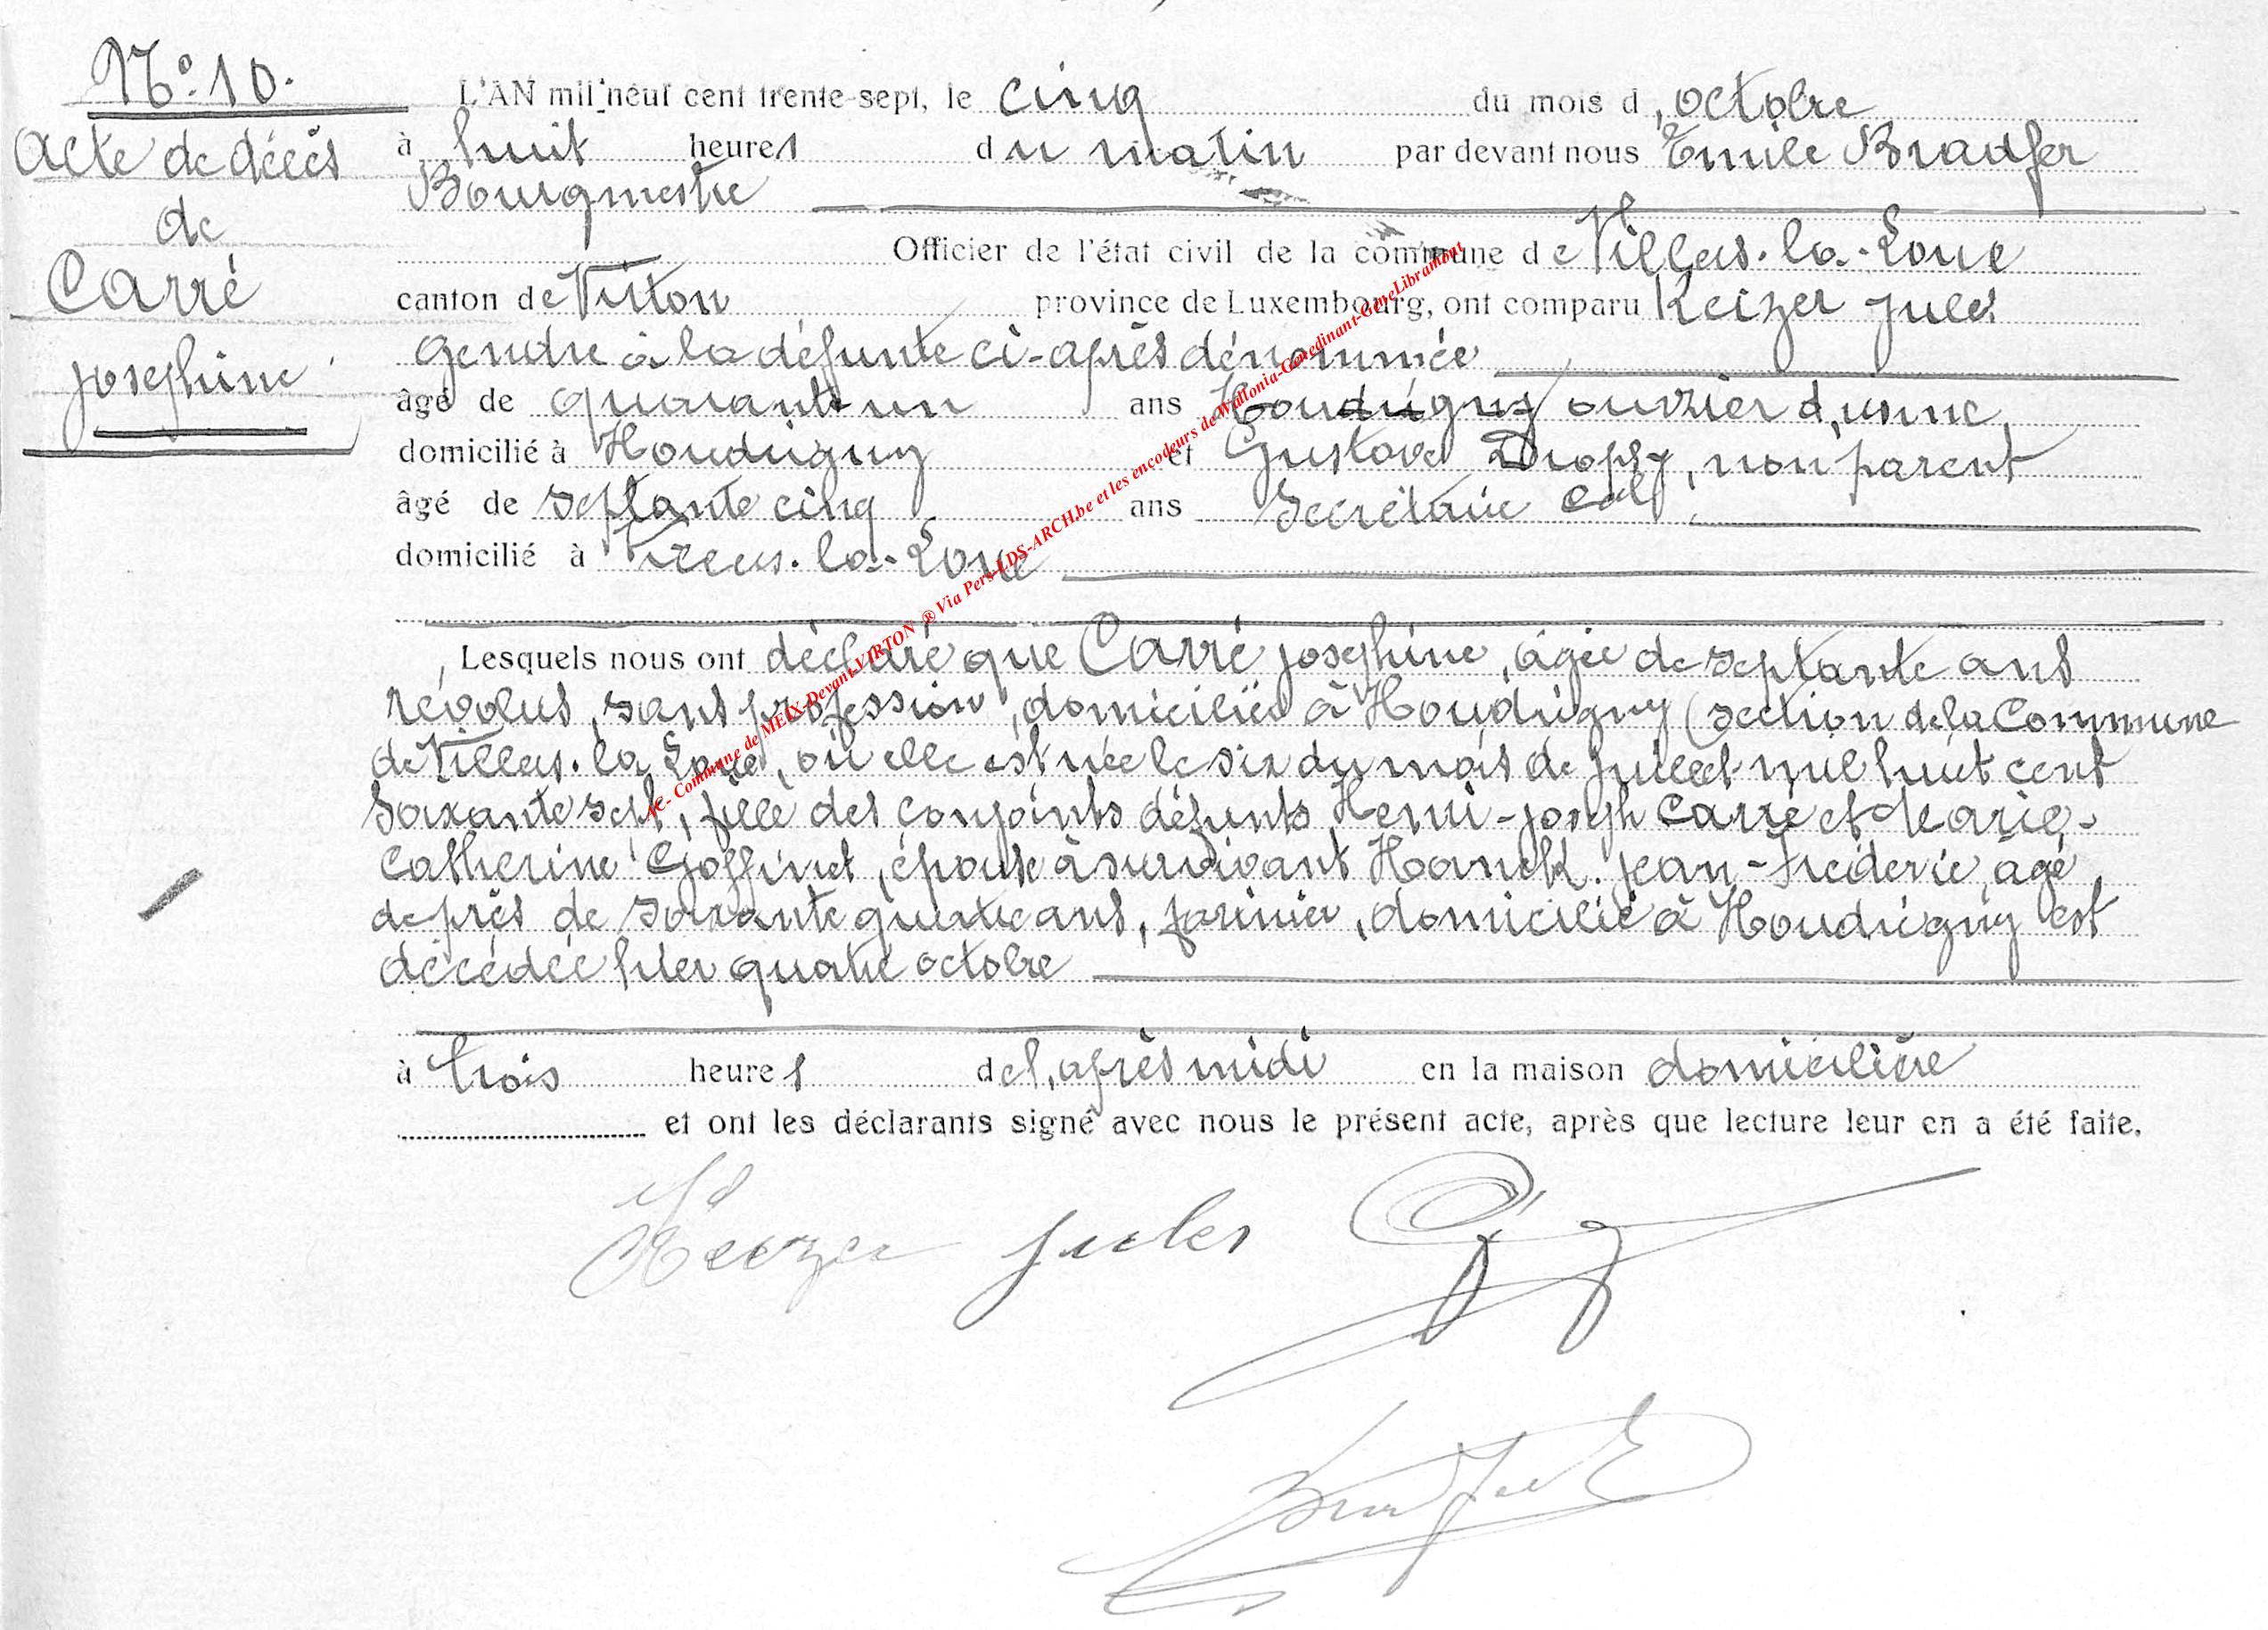 N° 10.
Acte de décès
de
Carré
Joséphine
L'AN mil neuf cent trente-sept, le cinq du mois d'octobre
à huit heures du matin par devant nous Emile Bradfer
Bourgmestre
Officier de l'état civil de la commune de Villers-la-Loue
canton de Virton province de Luxembourg, ont comparu Keizer Jules
gendre à la défunte ci-après dénommée
âgé de quarante un ans Houdrigny ouvrier d'usine,
domicilié à Houdrigny et Gustave Dropsy, non parent
âgé de septante cinq ans Secrétaire Cal,
domicilié à Villers-la-Loue
Lesquels nous ont déclaré que Carré Joséphine, âgée de septante ans
révolus, sans profession, domiciliée à Houdrigny (section de la Commune
de Villers-la-Loue, où elle est née le six du mois de Juillet mil huit cent
soixante sept, fille des conjoints défunts Henri-Joseph Carré et Marie-
Catherine Goffinet, épouse à survivant Hanck Jean-Fréderic, âgé
de près de soixante quatre ans, , domicilié à Houdrigny est
décédée hier quatre octobre
à trois heures de l'après midi en la maison domicilière
et ont les déclarants signé avec nous le présent acte, après que lecture leur en a été faite.
Keizer Jules
AC- Commune de MEIX-Devant-VIRTON ® Via Pers-LDS-ARCH.be et les encodeurs de Wallonia-Genedinant-GeneLibramont